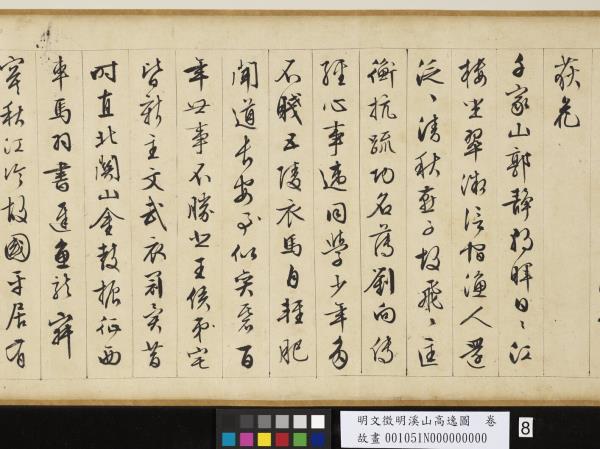 荻花
千家山郭靜朝暉日〻江
樓坐翠微信宿漁人還
泛〻清秋燕子故飛〻匡
衡抗疏功名薄劉向傳
經心事違同學少年多
不賤五陵衣馬自輕肥
聞道長安似奕碁百
年世事不勝悲王侯第宅
皆新主文武衣冠異昔
時直北關山金鼓振征西
車馬羽書遲魚龍寂
寞秋江冷故國平居有
明文徵明溪山高逸圖 卷
故畫 001051N000000000
8